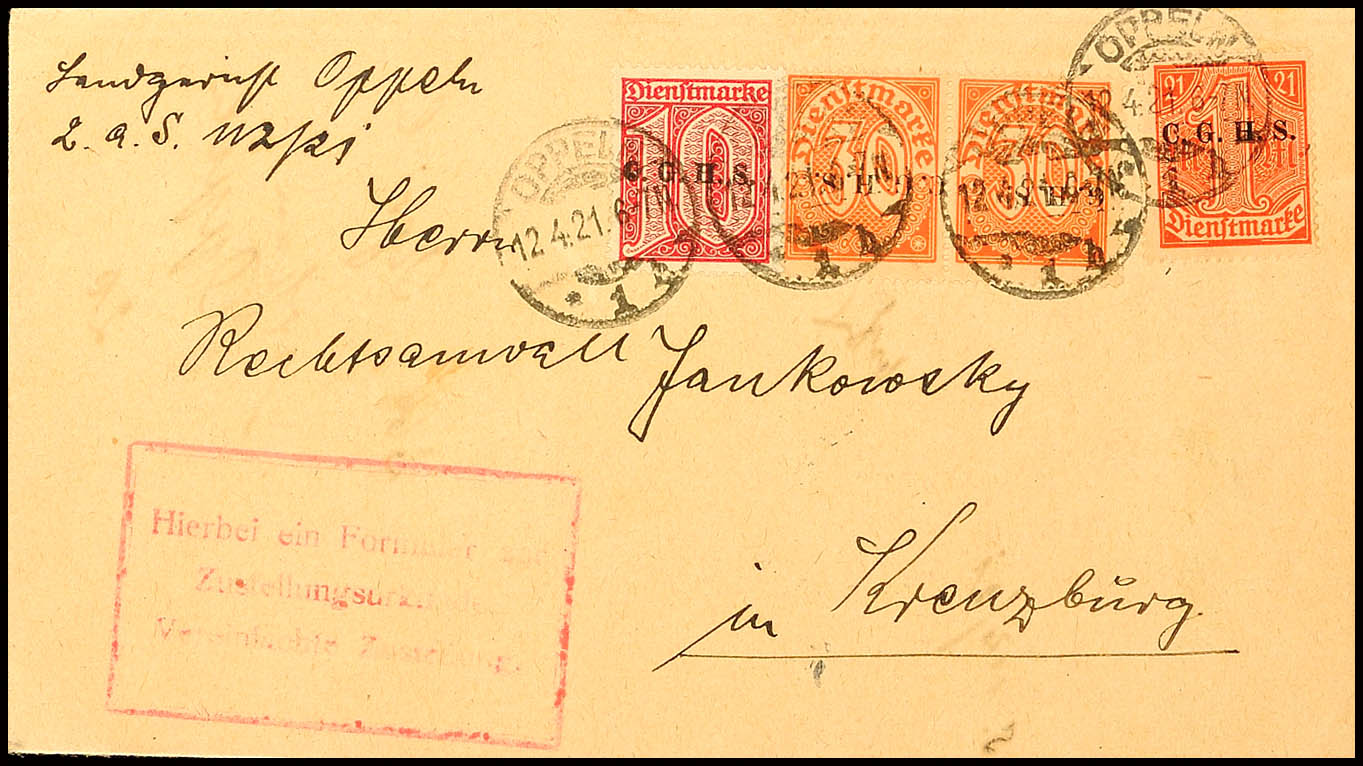 Landgericht Oppeln
2. a. S. 112/21
Dienstmarke
10
C. G. H. S.
Dienstmarke
30
Dienstmarke
30
21 21
C. G. H. S.
1 M
Dienstmarke
OPPELN
12.4.21. 6-7N
* 1 h
Herrn
Rechtsanwalt Jankowsky
in Kreuzburg
Hierbei ein Formular zur
Zustellungsurkunde.
Vereinfachte Zustellung.